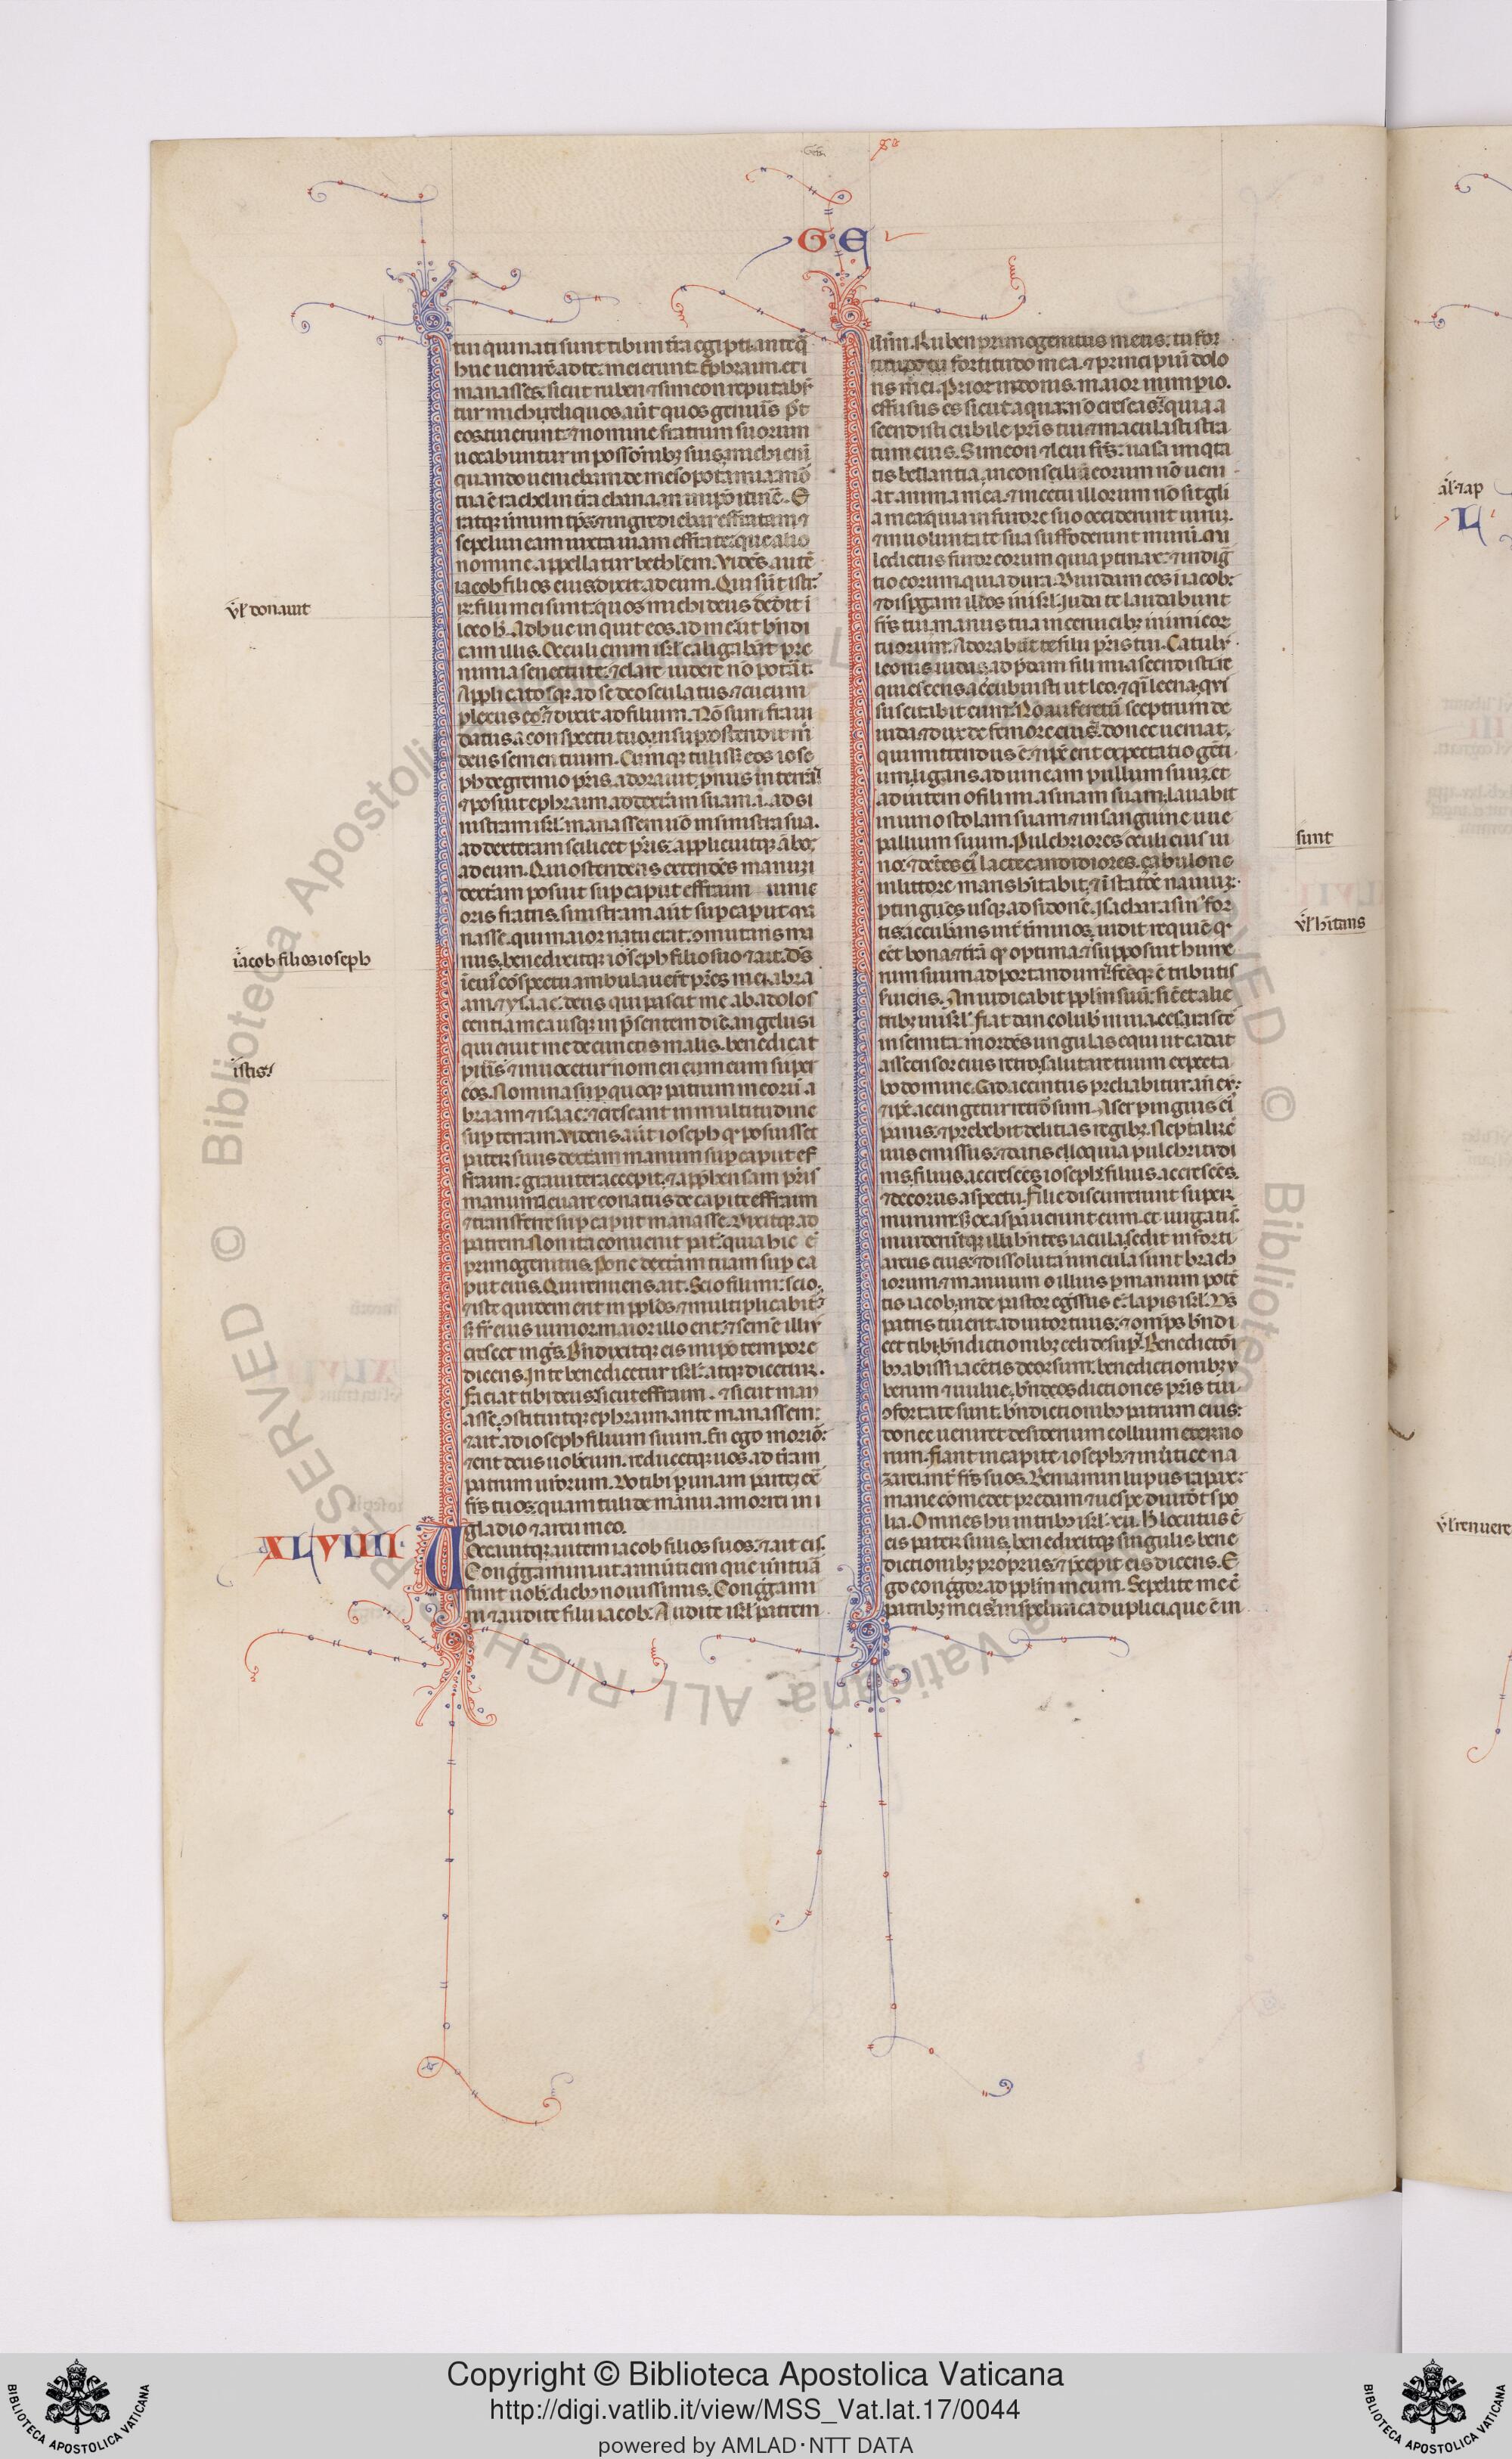 G E
tui qui nati sunt tibi in t̄ra egipti anteq̄ȝ
huc uenirē ad te. mei erunt. Ephraim et
manasses. sicut ruben ⁊ simeon reputabū
tur michi. reliquos aūt quos genuis̄ p̄t
eos. tui erunt. ⁊ nomine fratrum suorum
uocabuntur in possōnibȝ suis. michi enī
quando ueniebam de mesopotamia. mor
tua ē rachel in t̄ra chanaan in ip̄o itin̄e. E
ratqȝ uernum tp̄s. ⁊ ingrediebar effratam ⁊
sepeliui eam iuxta uiam effrate. que alio
nomine appellatur bethl'em. Vidēs autē
iacob filios eius. dixit ad eum. Qui sūt isti.
R. filii mei sunt. quos michi deus dedit ī
loco h̄. Adhuc inquit eos. ad me ut bn̄di
cam illis. Oculi enim isr̄l caligabāt pre
nimia senectute. ⁊ clare uidere nō potāt.
Applicitosqȝ ad se deosculatus. ⁊ circum
plexus eos. dixit ad filium. Nō sum frau
datus a conspectu tuo. insup ostendit m̄
deus semen tuum. Cumqȝ tulisset eos iose
ph de gremio pr̄is. adorauit pronus in terrā.
⁊ posuit ephraim ad dextram suam .i. ad si
nistram isr̄l. manassem uō in sinistra sua.
ad dexteram scilicet pr̄is. applicuitqȝ ābos
ad eum. Qui ostendens extendēs manum
dextram posuit sup caput effraim iunie
oris fratris. sinistram aūt sup caput ma
nasse. qui maior natu erat. ↄmutans ma
nus. benedixitqȝ ioseph filio suo ⁊ ait. Dn̄s
ī cui' ↄspectu ambulauer̄t pr̄es mei. abra
am. ⁊ ysaac. deus qui pascit me ab adoles
centia mea usqȝ in p̄sentem diē. angelus
qui eruit me de cunctis malis. benedicat
puris ⁊ inuocetur nomen eum eum super
eos. Nomina sup quoqȝ patrum meorū a
braam ⁊ isaac. ⁊ crescant in multitudine
sup terram. Videns aūt ioseph qȝ posuisset
pater suus dextram manum sup caput ef
fraim. grauiter accepit. ⁊ app̄hensam pr̄is
manum leuare conatus de capite effraim
⁊ transferre sup caput manasse. Dixitqȝ ad
patrem. Non ita conuenit pat̄. quia hic ē
primogenitus. Pone dextram tuam sup ca
put eius. Qui renuens. ait. Scio fili mi. scio.
⁊ iste quidem erit in pplōs ⁊ multiplicabit'.
s; fr̄ eius iunior maior illo erit. ⁊ semē illi'
crescet in gēs. Bn̄dixitqȝ eis in ip̄o tempore
dicens. In te benedicetur isr̄l. atqȝ dicetur.
Faciat tibi deus. sicut effraim. ⁊ sicut man
asse. ↄstituitqȝ ephraim ante manassem.
⁊ ait ad ioseph filium suum. En ego morior.
⁊ erit deus uobcum. reducetqȝ uos ad t̄ram
patrum ur̄orum. Do tibi p unam partē ex̄
fr̄s tuos. quam tuli de manu amorrei in
gladio ⁊ arcu meo.
XLVIIII
Uocauitqȝ autem iacob filios suos. ⁊ ait eis.
Congregamini. ut annūtiem que uētura
sunt uob̄ diebȝ nouissimis. Congregami
ni ⁊ audite filii iacob. Audite isr̄l patrem
ur̄m. Ruben primogenitus meus. tu for
titudo mea. ⁊ principiū dolo
ris mei. Prior in donis. maior in imp̄io.
effusus es sicut aqua. nō crescas. quia a
scendisti cubile pr̄is tui ⁊ maculasti stra
tum eius. Simeon ⁊ leui fr̄s. uasa iniqita
tis bellantia. in consciliū eorum nō ueni
at anima mea. ⁊ in cetu illorum nō sit gl̄i
a mea. quia in furore suo occiderunt uirum.
⁊ in uoluntate sua suffoderunt murū. Ma
ledictus furor eorum quia ptinax. ⁊ indiḡ
tio eorum. quia dura. Diuidam eos ī iacob.
⁊ dispgam illos in isr̄l. Iuda te laudabunt
fr̄s tui. manus tua in ceruicibȝ inimicor
tuorum. Adorabūt te filii pr̄is tui. Catulus
leonis iudas. ad p̄dam fili mi ascendisti. re
quiescens accubuisti ut leo. ⁊ qi leena. quis
suscitabit eum. Nō auferetur sceptrum de
iuda. ⁊ dux de femore eius. donec ueniat.
qui mittendus ē. ⁊ ip̄e erit expectatio gēti
um. ligans ad uineam pullum suum. et
ad uitem o fili mi asinam suam. lauabit
in uino stolam suam ⁊ in sanguine uue
pallium suum. Pulchriores oculi eius ui
no. ⁊ dētes ei' lacte candidiores. Zabulon
in littore maris hītabit. ⁊ ī statōe nauium.
ptingens usqȝ ad sidonē. Isachar asin' for
tis. accubans int̄ t̄minos. uidit requiē qȝ
eēt bona. ⁊ t̄ra qȝ optima. ⁊ supposuit hume
rum suum ad portandum. factusqȝ ē tributis
seruiens. Dan iudicabit pplm̄ suū. sic̄ et alie
tribȝ in isr̄l. Fiat dan colub̄ in uia. cerastes
in semita. mordēs ungulas equi ut cadat
assensor eius retro. salutare tuum expecta
bo domine. Gad accintus preliabitur an̄ eū.
⁊ ip̄e accingetur retrosum. Aser pinguis ei'
panis. ⁊ prebebit delitias regibȝ. Neptalim c̄
uus emissus. ⁊ dans elloquia pulchritudi
nis. filius accrescēs ioseph. filius accrescēs.
⁊ decorus aspectu. Filie discurrerunt super
murum. s; exaspauerunt eum. et iurgati s̄.
inuiderūtqȝ illi hn̄tes iacula. sedit in forti
arcus eius. ⁊ dissoluta uincula sunt brach
iorum ⁊ manuum illius p manum potē
tis iacob. inde pastor egr̄ssus ē. lapis isr̄l. Ds̄
patris tui erit adiutor tuus. ⁊ omip̄s bn̄di
cet tibi. bn̄dictionibȝ celi desup̄. Benedictōi
bȝ abissi iacētis deorsum. benedictionibȝ u
berum ⁊ uulue. bn̄deos dictiones pr̄is tui
ↄfortate sunt. bn̄dictionibȝ patrum eius.
donec ueniret desiderium collium eterno
rum. fiant in capite ioseph. ⁊ in u̇tice na
zarei int̄ fr̄s suos. Beniamin lupus rapax.
mane comedet predam ⁊ uespe diuidet spo
lia. Omnes hii in tribȝ isr̄l .xii. H̄ locutus ē
eis pater suus. benedixitqȝ singulis bene
dictionibȝ propriis. ⁊ p̄cepit eis dicens. E
go congregor ad pplm̄ meum. Sepelite me cū
patribȝ meis in spelunca duplici. que ē in
ūl donauit
iacob filios ioseph
istis
sunt
ūl hītans
āl ⁊ ap
L
ūl renuere
© Biblioteca Apostolica Vaticana ALL RIGHTS RESERVED
Copyright © Biblioteca Apostolica Vaticana
http://digi.vatlib.it/view/MSS_Vat.lat.17/0044
powered by AMLAD·NTT DATA
BIBLIOTECA APOSTOLICA VATICANA
BIBLIOTECA APOSTOLICA VATICANA